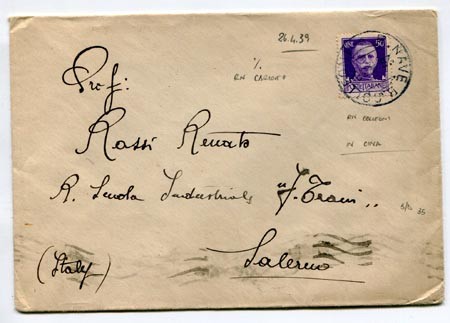 26.4.39
%
NAVE R.
50
Prof:
RN
Rossi Renato
RN
IN CINA
R. Scuola Industriale "F. Trani"
35
(Italy)
Salerno